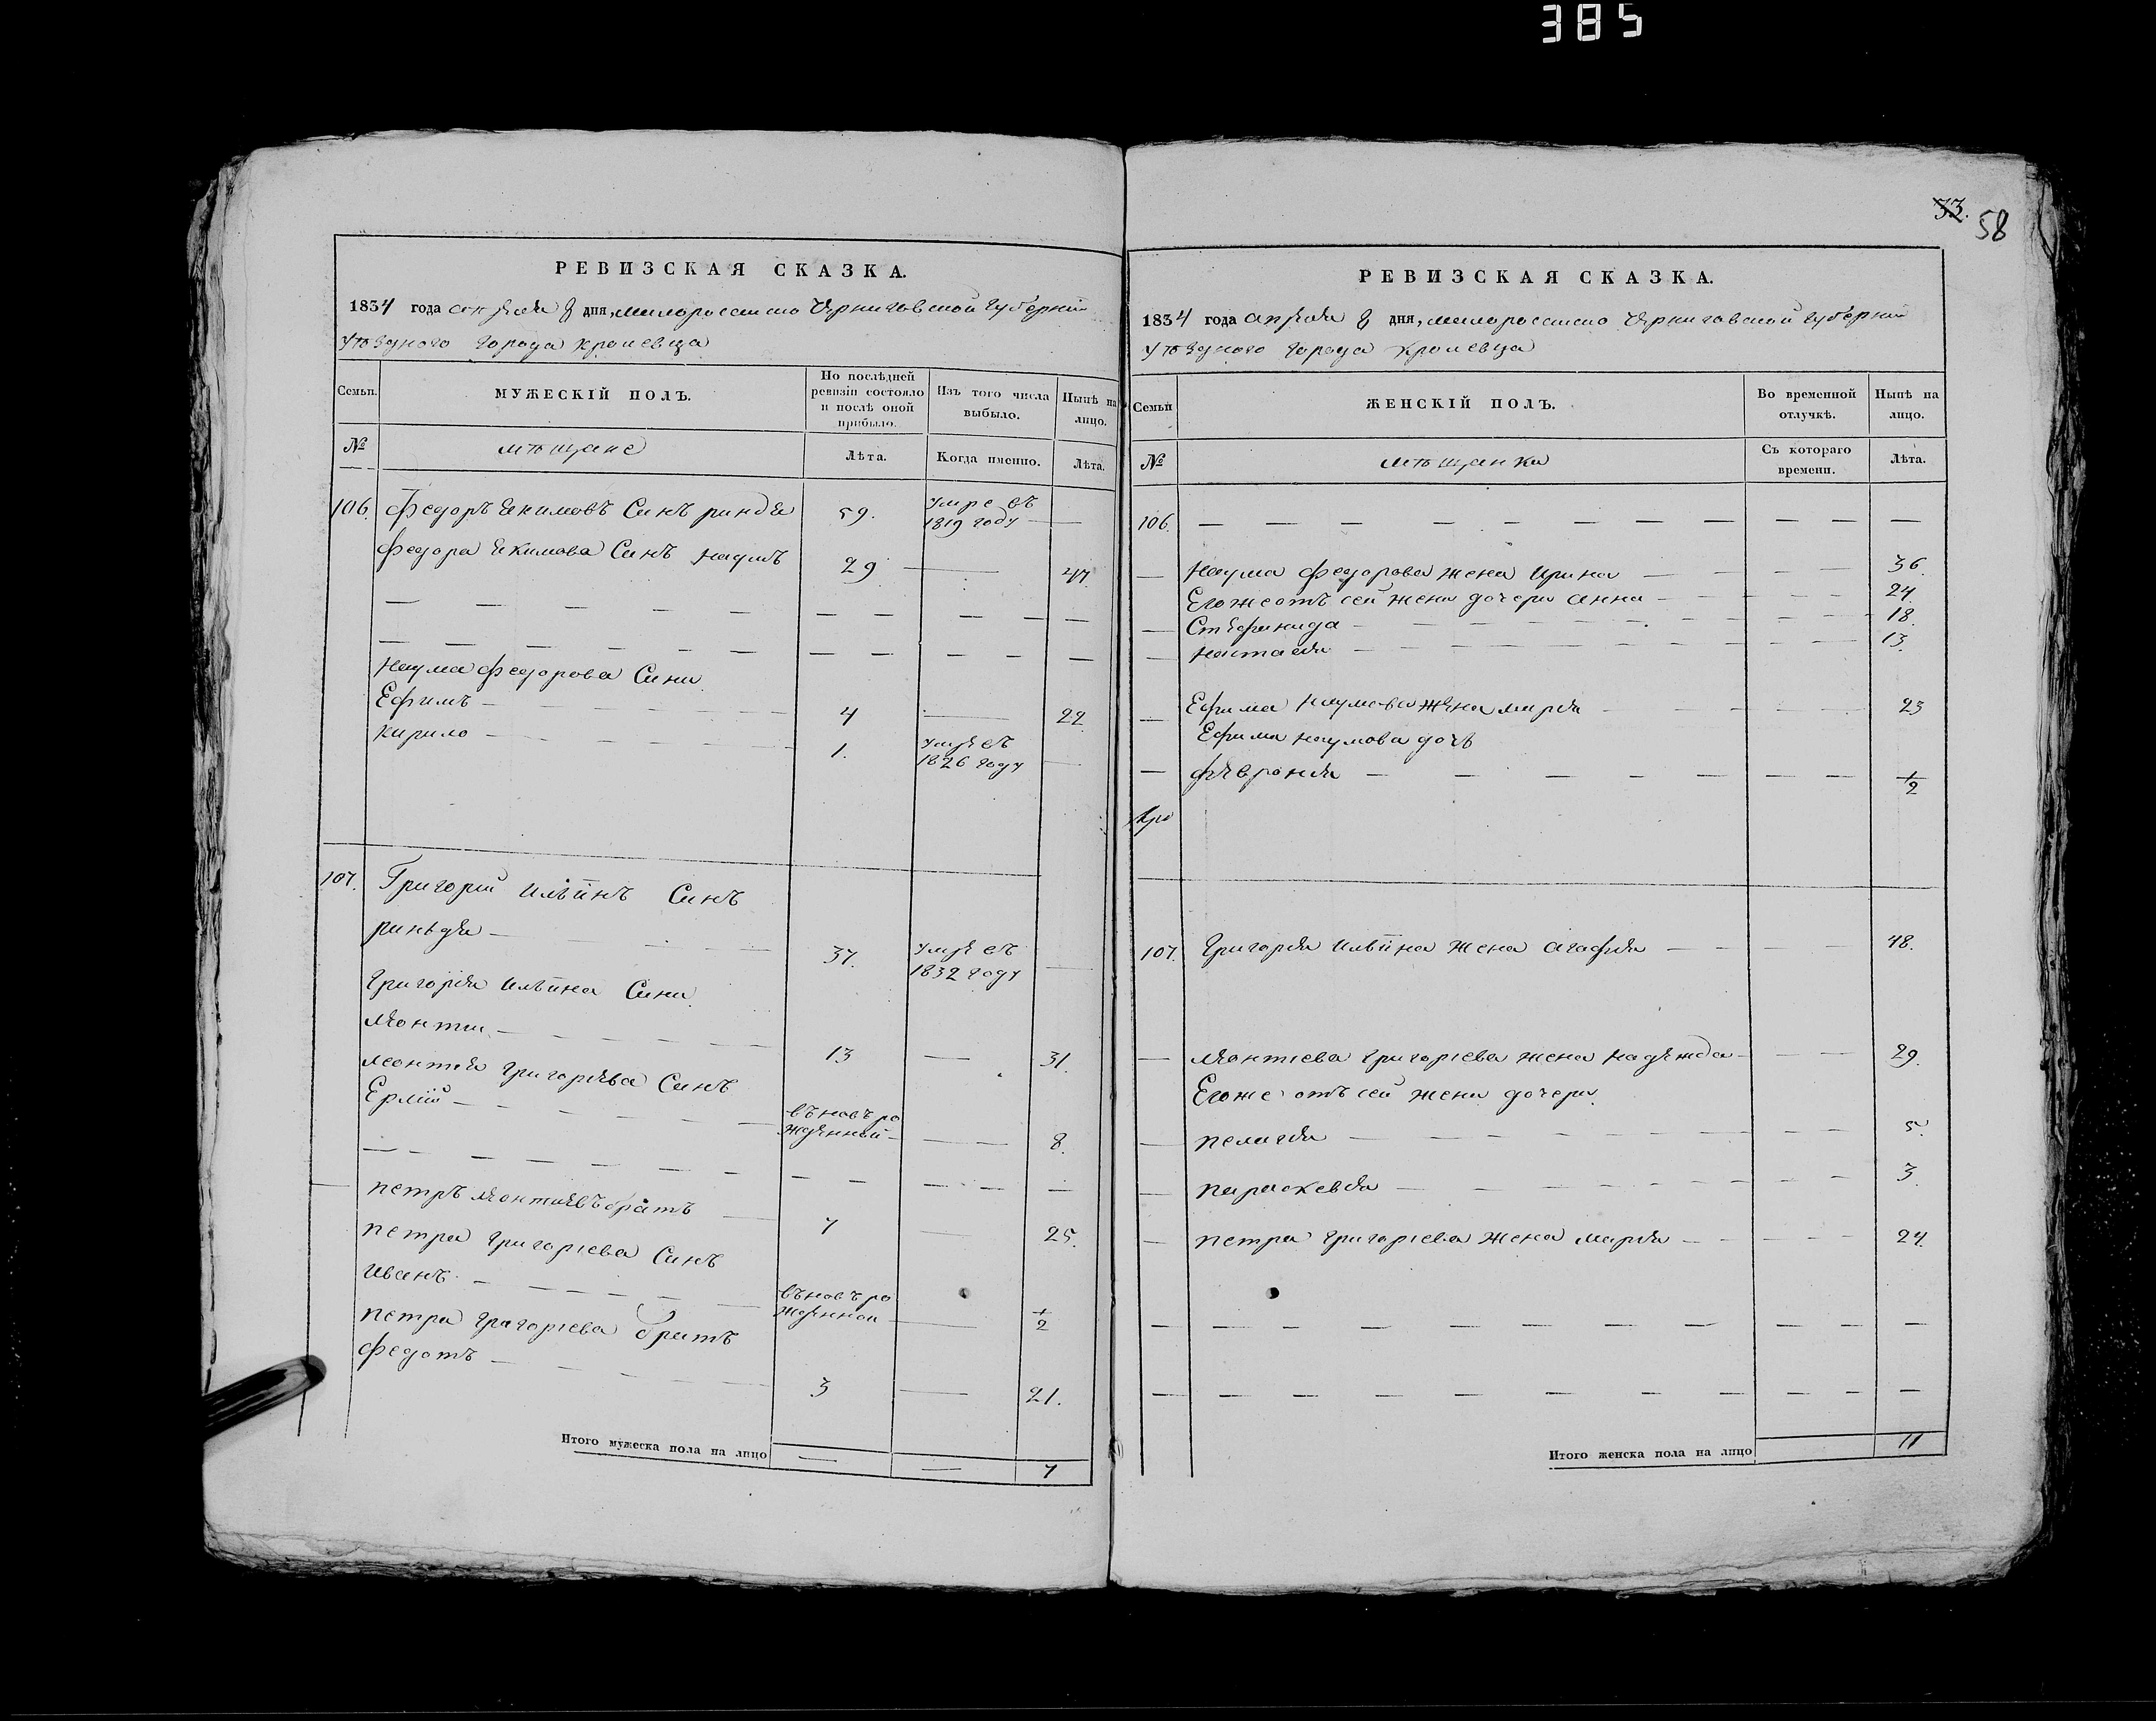 385
33. 58
РЕВИЗСКАЯ СКАЗКА.
1834 года апреля 8 дня, малороссийско Черниговской губерніи
уѣздного города Кролевца
Семьи. МУЖЕСКІЙ ПОЛЪ. По послѣдней ревизіи состояло и послѣ оной прибыло. Изъ того числа выбыло. Нынѣ на лицо.
№ мѣщане Лѣта. Когда именно. Лѣта.
106. Федоръ Екимовъ Синъ ринда 59. умре въ 1819 году —
Федора Екимова Синъ наумъ 29 — 47
Наума Федорова Сини
Ефимъ — 4 — 22
Кирило — 1. умре въ 1826 году —
107. Григорій Ильинъ Синъ
риньдя — 37. умре въ 1832 году —
Григорія Ильина Сини
Леонтии — 13 — 31.
Леонтия Григориева Синъ
Ермій — въновъ рожденный — 8.
петръ Леонтиевъ братъ — 7 — 25.
петра Григориева Синъ
Иванъ — въновъ рожденной — 1/2
петра Григориева братъ
Федотъ — 3 — 21.
Итого мужеска пола на лицо — — 7
РЕВИЗСКАЯ СКАЗКА.
1834 года апреля 8 дня, малороссийско Черниговской губерніи
уѣздного города Кролевца
Семьи ЖЕНСКІЙ ПОЛЪ. Во временной отлучкѣ. Нынѣ на лицо.
№ мѣщанки Съ котораго времени. Лѣта.
106. — — —
— Наума Федорова жена Ирина — 36.
Егожеотъ сей жени дочери анна — 24
— Стефинида — 18.
— настасія — 13.
— Ефима Наумова жена марія — 23
Ефима наумова дочь
— февронія — 1/2
107. Григория Ильина жена агафия — 48.
— Леонтиева Григориева жена надежда — 29.
Егоже отъ сей жени дочери
— пелагея — 5.
— параскевия — 3
— петра Григориева жена мария — 24.
Итого женска пола на лицо 11